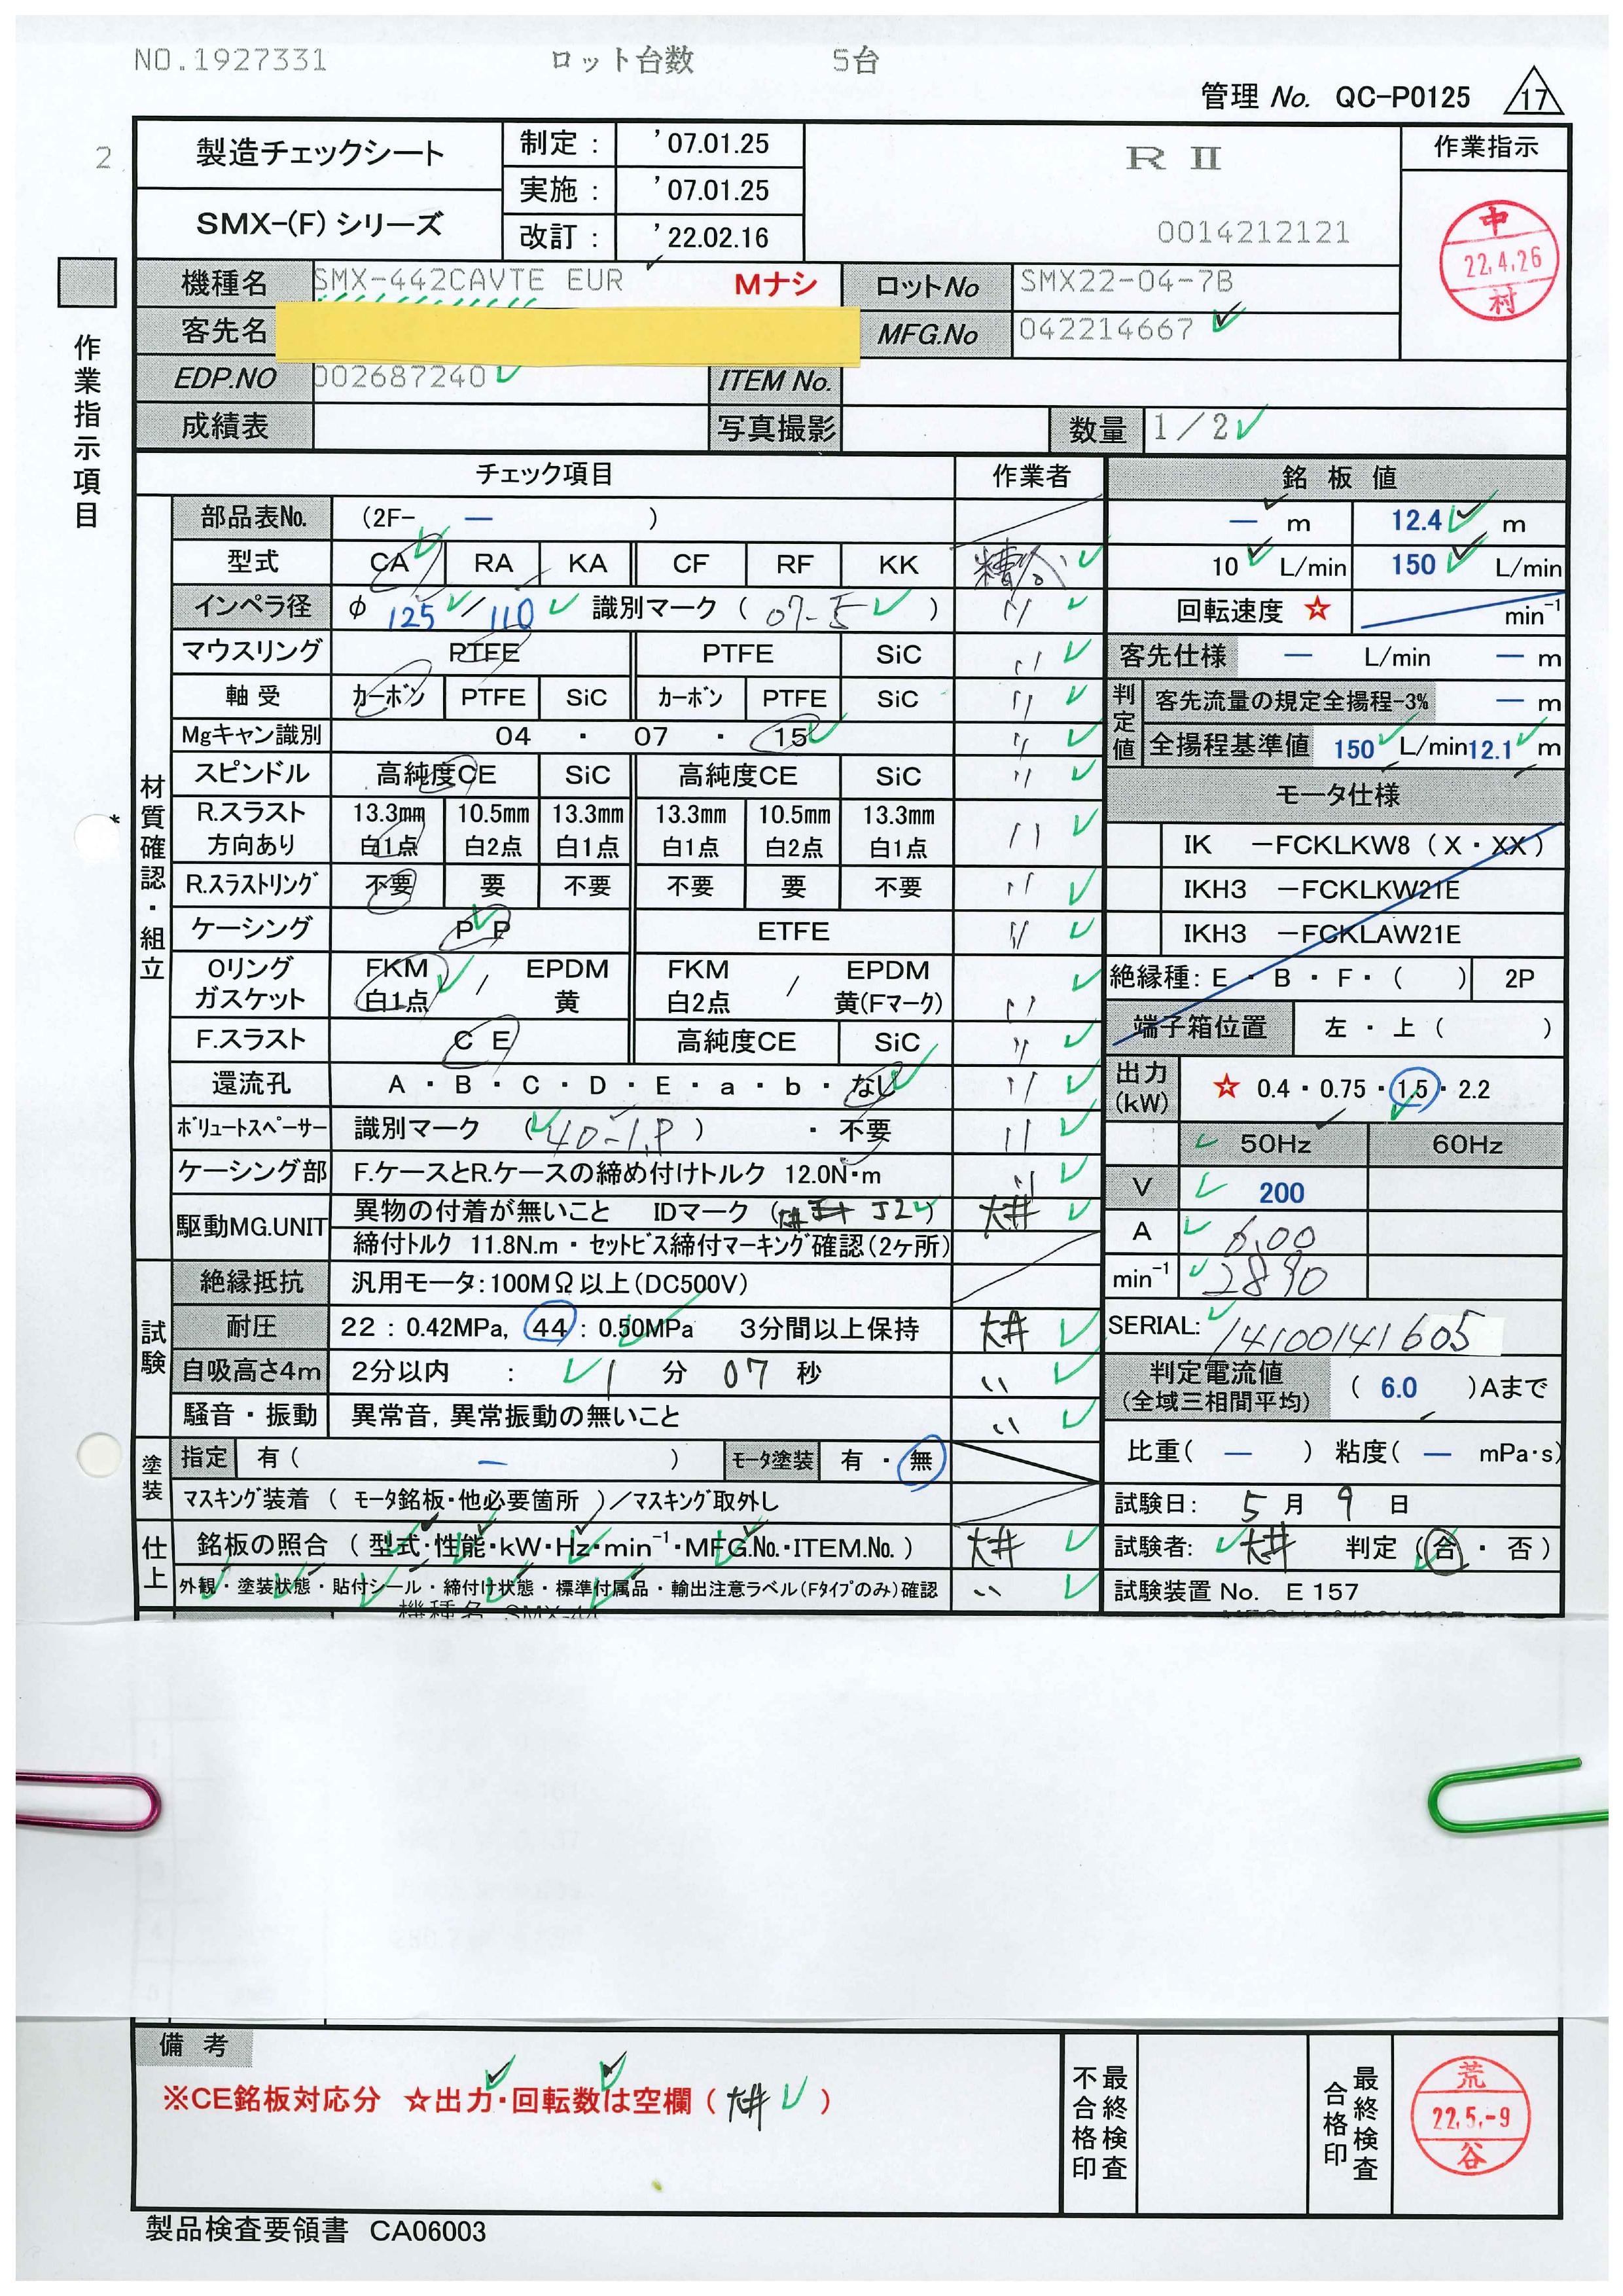 NO.1927331 ロット台数 5台
管理 No. QC-P0125 17
2
製造チェックシート
SMX-(F) シリーズ
制定： ’07.01.25
実施： ’07.01.25
改訂： ’22.02.16
R II
0014212121
作業指示
中
22.4.26
村
機種名 SMX-442CAVTE EUR Mナシ ロットNo SMX22-04-7B
客先名 MFG.No 042214667
EDP.NO 002687240 ITEM No.
成績表 写真撮影 数量 1/2
作業指示項目
チェック項目 作業者
材質確認・組立
部品表No. (2F- — )
型式 CA RA KA CF RF KK
インペラ径 φ 125/110 識別マーク ( 07-5 ) 〃
マウスリング PTFE PTFE SiC 〃
軸受 カーボン PTFE SiC カーボン PTFE SiC 〃
Mgキャン識別 04 ・ 07 ・ 15 〃
スピンドル 高純度CE SiC 高純度CE SiC 〃
R.スラスト 13.3mm 10.5mm 13.3mm 13.3mm 10.5mm 13.3mm
方向あり 白1点 白2点 白1点 白1点 白2点 白1点 〃
R.スラストリング 不要 要 不要 不要 要 不要 〃
ケーシング PP ETFE 〃
Oリング FKM / EPDM FKM / EPDM
ガスケット 白1点 黄 白2点 黄(Fマーク) 〃
F.スラスト CE 高純度CE SiC 〃
還流孔 A・B・C・D・E・a・b・なし 〃
ボリュートスペーサー 識別マーク ( 40-1.P ) ・不要 〃
ケーシング部 F.ケースとR.ケースの締め付けトルク 12.0N・m 〃
駆動MG.UNIT 異物の付着が無いこと IDマーク ( J2 ) 大井
締付トルク 11.8N.m・セットビス締付マーキング確認(2ヶ所)
試験
絶縁抵抗 汎用モータ:100MΩ以上(DC500V)
耐圧 22：0.42MPa, 44：0.50MPa 3分間以上保持 大井
自吸高さ4m 2分以内 ： 1 分 07 秒 〃
騒音・振動 異常音, 異常振動の無いこと 〃
塗装
指定 有 ( — ) モータ塗装 有・無
マスキング装着 ( モータ銘板・他必要箇所 )/マスキング取外し
仕上
銘板の照合 ( 型式・性能・kW・Hz・min⁻¹・MFG.No.・ITEM.No. ) 大井
外観・塗装状態・貼付シール・締付け状態・標準付属品・輸出注意ラベル(Fタイプのみ)確認 〃
銘板値
— m 12.4 m
10 L/min 150 L/min
回転速度 ☆ min⁻¹
客先仕様 — L/min — m
判定値
客先流量の規定全揚程-3% — m
全揚程基準値 150 L/min 12.1 m
モータ仕様
IK －FCKLKW8 (X・XX)
IKH3 －FCKLKW21E
IKH3 －FCKLAW21E
絶縁種: E・B・F・( ) 2P
端子箱位置 左・上( )
出力(kW) ☆ 0.4・0.75・1.5・2.2
50Hz 60Hz
V 200
A 6.00
min⁻¹ 2890
SERIAL: 14100141605
判定電流値
(全域三相間平均) ( 6.0 )Aまで
比重( — ) 粘度( — mPa・s)
試験日: 5 月 9 日
試験者: 大井 判定 (合・否)
試験装置 No. E 157
備考
※CE銘板対応分 ☆出力・回転数は空欄 ( 大井 )
最終検査不合格印
最終検査合格印
荒
22.5.-9
谷
製品検査要領書 CA06003